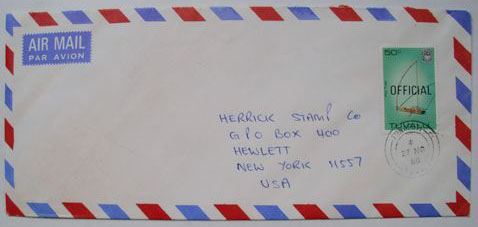 AIR MAIL
PAR AVION
50c
OFFICIAL
TUVALU
HERRICK STAMP Co
GPO BOX 400
HEWLETT
NEW YORK 11557
USA